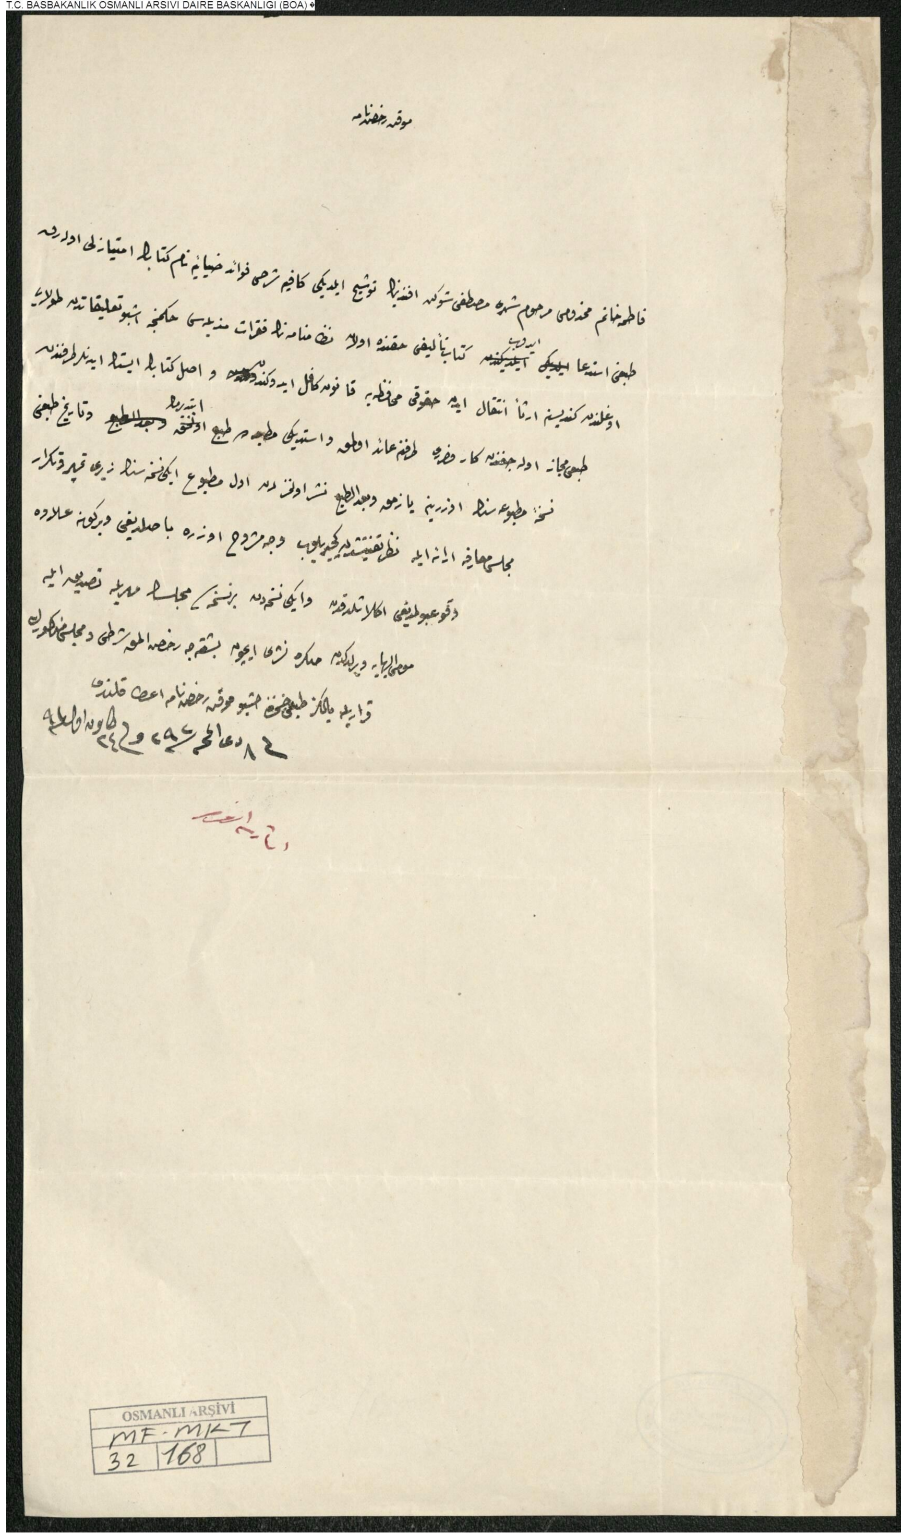 T.C. BASBAKANLIK OSMANLI ARSIVI DAIRE BASKANLIGI (BOA)
موقت رخصتنامه
فاطمه خانم مخدومی مرحوم مصطفی شوکت افندینك توشیح ایلدیکی کافیه شرحی فوائد ضیائیه نام کتابك امتیازلی اوله رق
طبعنی استدعا ایدوب کتاب تألیفی حقنده اولان نظامنامه نك فقرات حکمنجه اشبو تعلیقاتدن طولایی
اوغلندن کندیسنه ارثاً انتقال ایدن حقوقی محافظه یه قانون کافل ایدوکندن و اصل کتابك ایستین ایدنلر طرفندن
طبعی مجاز اوله جغندن کار و ضرری طرفنه عائد اولمق و استدیکی مطبعه ده طبع ایتدیرلك و تاریخ طبعنی
نسخ مطبوعه سنك اوزرینه یازمق وبعد الطبع نشر اولنمزدن اول مطبوع ایکی نسخه سنك
مجلس معارفه ارائه ایله نظر تفتیشدن کچیریلوب وجه مشروح اوزره باصلدیغی و برکونه علاوه
وقوعبولمدیغی اکلاشلدقدن و ایکی نسخه دن بر نسخه سی مجلسك مهریله تصدیق ایله
مومی الیهایه ویرلدکدن صکره نشری ایچون بشقه جه رخصت المق شرطی و مجلس مذکورك
قراریله یالکز طبعی ضمننده اشبو موقت رخصتنامه اعطا قلندی
OSMANLI ARŞİVİ
MF-MKT
32 168